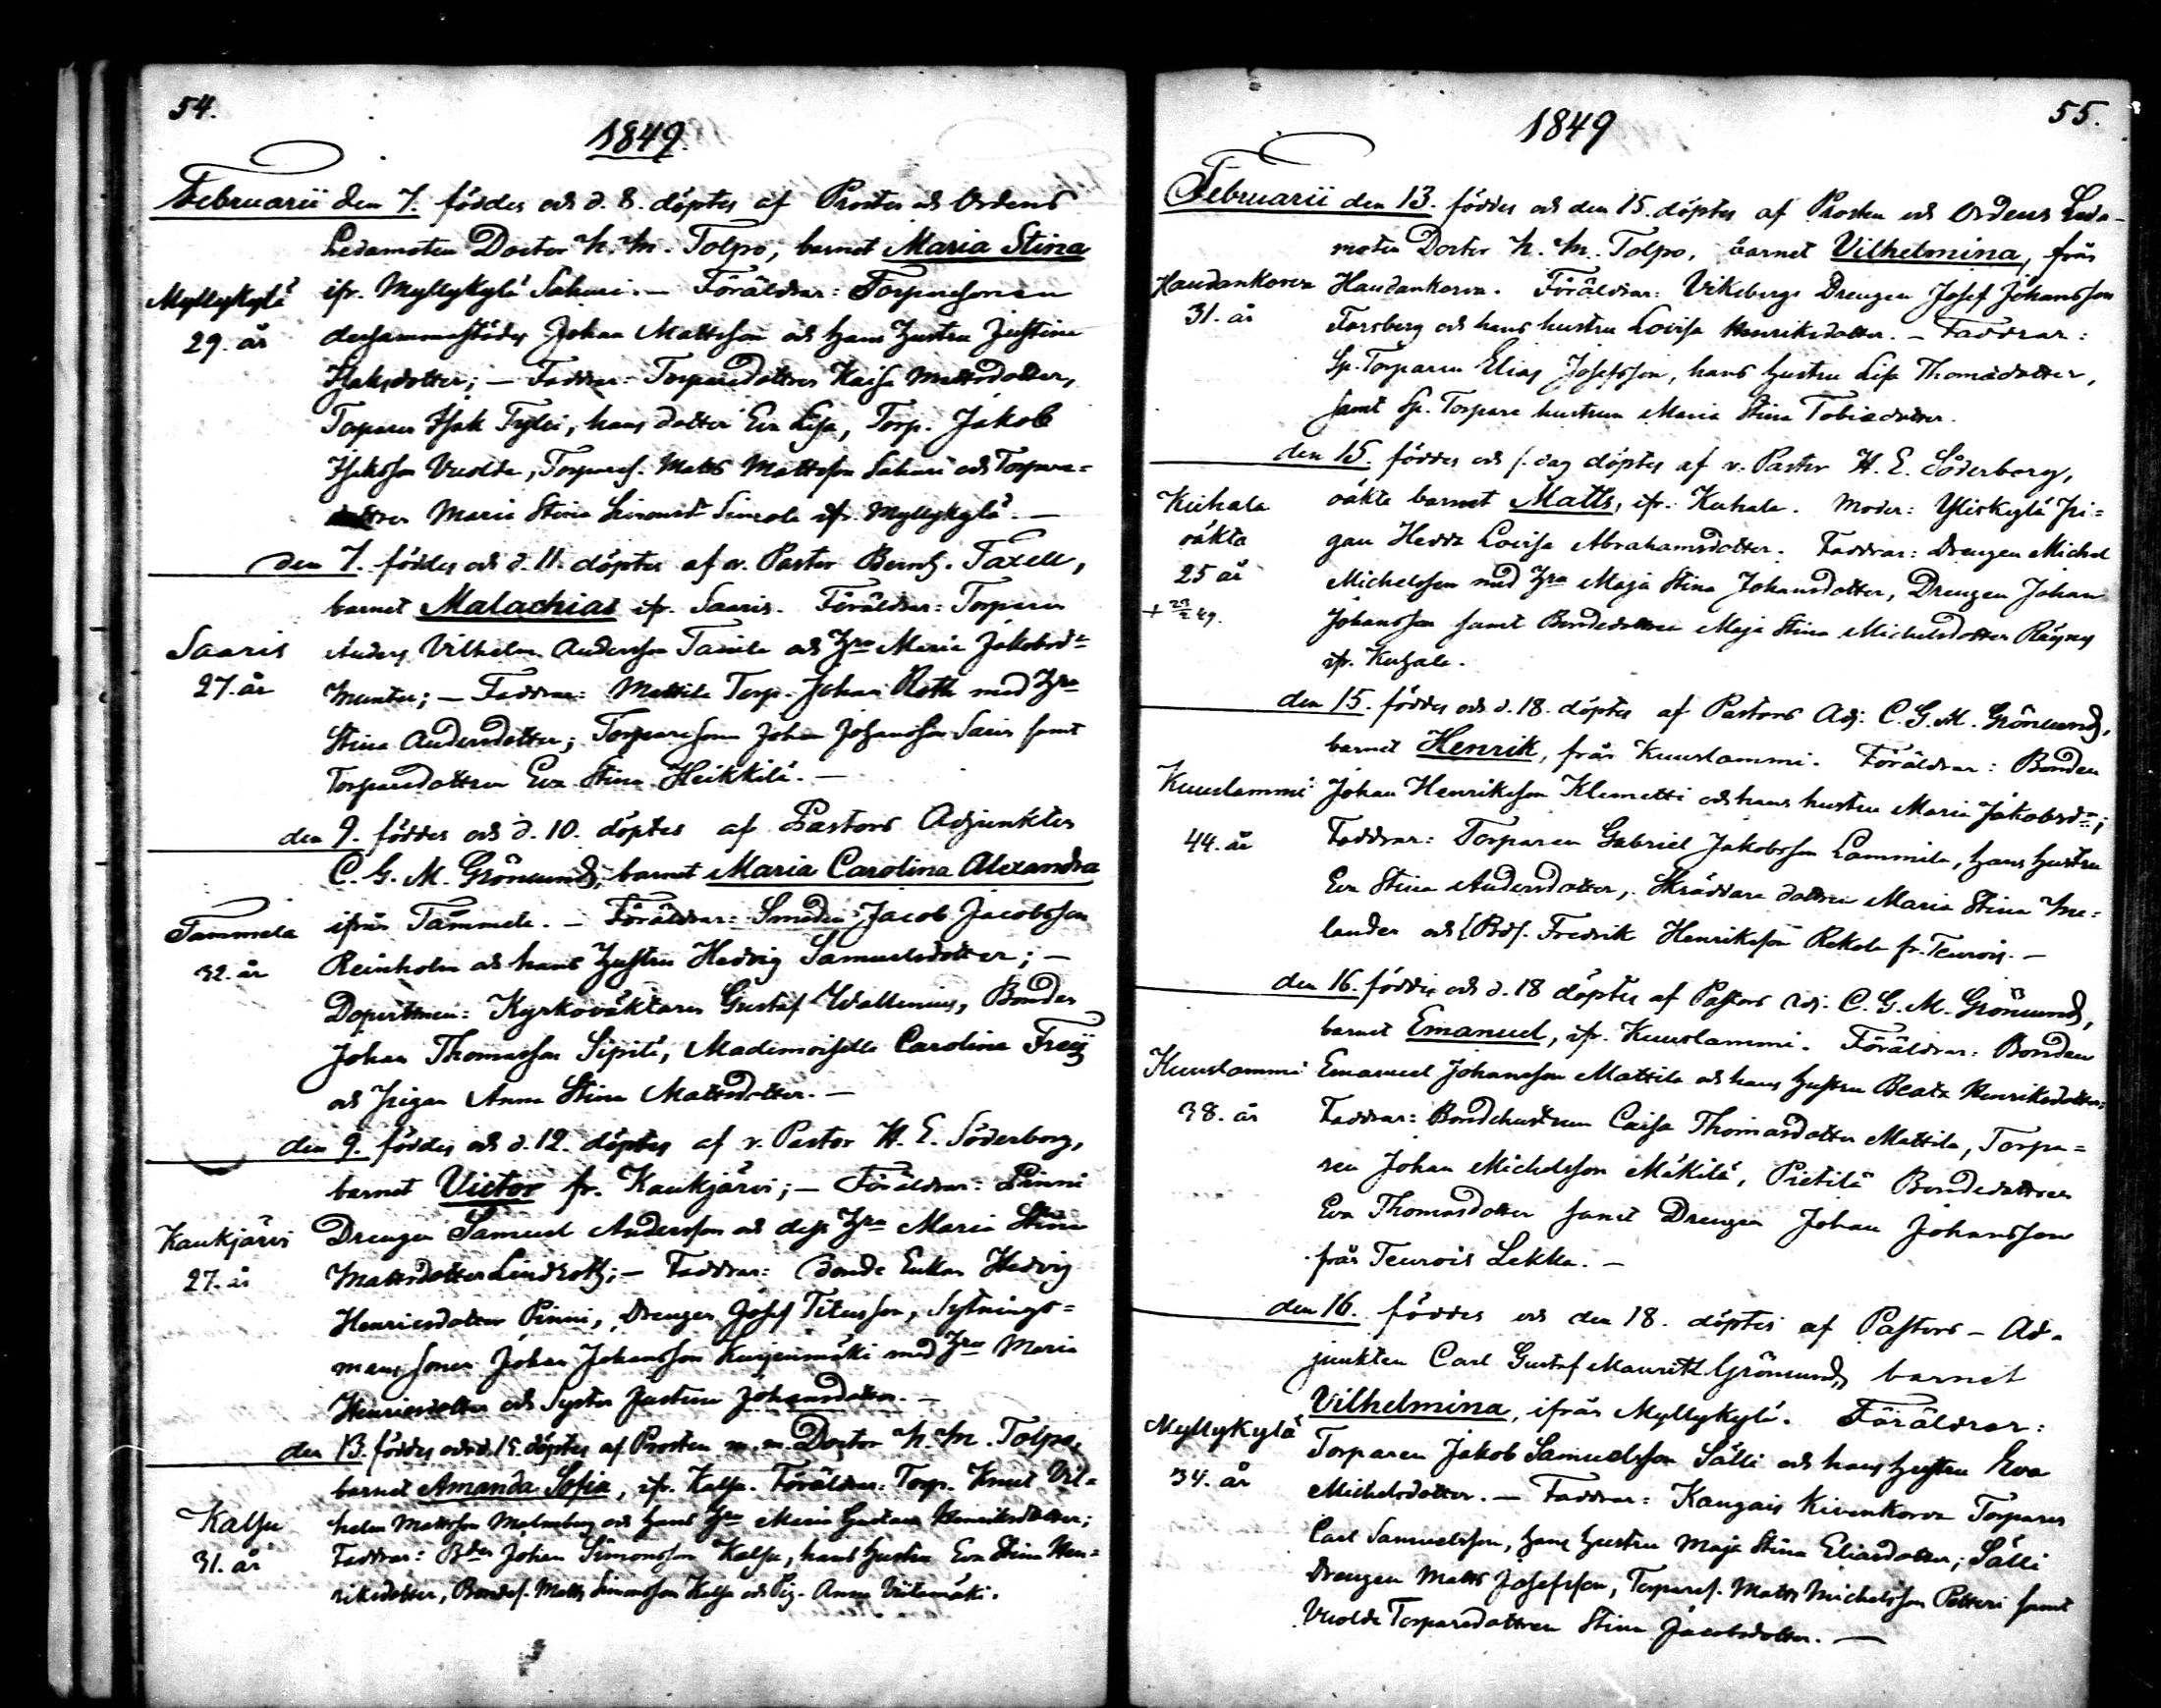 54.
1849.
Februarii den 7. föddes och d. 8. döptes af Prosten och Ordens
Ledamoten Doctor N. M. Tolpo, barnet Maria Stina
Myllykylä
29. år
ifr. Myllykylä Sahuri. — Föräldrar: Torparesonen
dersammastädes Johan Mattsson och hans hustru Justina
Isaksdotter; — Faddrar: Torparedottren Kaisa Mattsdotter,
Torparen Isak, hans dotter Eva Lisa, Torp. Jakob
Isaksson Vuolde, Torpares. Matts Mattsson Sahuri och Torpare=
dottren Maria Stina Simonsdr ifr. Myllykylä. —
den 7. föddes och d. 11. döptes af v. Pastor Bernh. Taxell,
barnet Malachias ifr. Saaris. Föräldrar: Torparen
Saaris
27. år
Anders Vilhelm Andersson Tanila och hru Maria Jakobsdr
Munter; — Faddrar: Mattila Torp. Johan Roth med hru
Stina Andersdotter; Torparesonen Johan Johansson Saris samt
Torparedottren Eva Stina Heikkilä. —
den 9. föddes och d. 10. döptes af Pastors Adjunkten
C. G. M. Grönlund, barnet Maria Carolina Alexandra
Tammela
32. år
ifrån Tammela. — Föräldrar: Smeden Jacob Jacobsson
Reinholm och hans hustru Hedvig Samuelsdotter; —
Dopvittnen: Kyrkoväktaren Gustaf Wallenius, Bonden
Johan Thomasson Sipilä, Mademoiselle Carolina Freij
och Pigan Anna Stina Mattsdotter. —
den 9. föddes och d. 12. döptes af v. Pastor H. E. Söderborg,
barnet Victor fr. Kaukjärvi; — Föräldrar: Pinni
Kaukjärvi
27. år
Drengen Samuel Andersson och dess hru Maria Stina
Mattsdotter Lindroth; — Faddrar: Bonde Enkan Hedvig
Henricsdotter Pinni, Drengen Josef Titusson, Sytnings=
mans sonen Johan Johansson Kurjenmäki med hru Maria
Henricsdotter och Syster Justina Johansdotter. —
den 13. föddes och d. 15. döptes af Prosten m. m. Doctor N. M. Tolpo,
barnet Amanda Sofia, ifr. Kalsu. Föräldrar: Torp. Knut Vil=
Kalsu
31. år
helm Mattsson Malmberg och hans hru Maria Gustava Henriksdotter;
Faddrar: Bden Johan Simonsson Kalsu, hans hustru Eva Stina Hen=
riksdotter, Bondes. Matts Simonsson Kalsu och Pig. Anna Viitamäki.
55.
1849
Februarii den 13. föddes och den 15. döptes af Prosten och Ordens Leda-
moten Doctor N. M. Tolpo, barnet Vilhelmina, från
Haudankorva
31. år
Haudankorva. Föräldrar: Viksbergs Drengen Josef Johansson
Forsberg och hans hustru Lovisa Henriksdotter. — Faddrar:
Sp. Torparen Elias Josefsson, hans hustru Lisa Thomasdotter,
samt Sp. Torpare hustrun Maria Stina Tobiasdotter.
den 15. föddes och s. dag döptes af v. Pastor H. E. Söderborg,
Kuhala
oäkta
25 år
+ 23/2 49.
oäkta barnet Matts, ifr. Kuhala. Moder: Yliskylä Pi=
gan Hedda Lovisa Abrahamsdotter. Faddrar: Drengen Michel
Michelsson med hru Maja Stina Johansdotter, Drengen Johan
Johansson samt Bondedottren Maja Stina Michelsdotter
ifr. Kuhala.
den 15. föddes och d. 18. döptes af Pastors Adj. C. G. M. Grönlund,
barnet Henrik, från Kuuslammi. Föräldrar: Bonden
Kuuslammi
44. år
Johan Henriksson Klemetti och hans hustru Maria Jakobsdr;
Faddrar: Torparen Gabriel Jakobsson Lammila, hans hustru
Eva Stina Andersdotter, Skräddare dottren Maria Stina Me=
lander och Bds. Fredrik Henriksson Rekola fr. Teurois. —
den 16. föddes och d. 18 döptes af Pastors Adj. C. G. M. Grönlund,
barnet Emanuel, ifr. Kuuslammi. Föräldrar: Bonden
Kuuslammi
38. år
Emanuel Johansson Mattila och hans hustru Beata Henriksdotter;
Faddrar: Bondehustrun Caisa Thomasdotter Mattila, Torpa=
ren Johan Michelsson Mäkilä, Pietilä Bondedottren
Eva Thomasdotter samt Drengen Johan Johansson
från Teurois Lekka. —
den 16. föddes och den 18. döptes af Pastors - Ad-
junkten Carl Gustaf Mauritz Grönlund, barnet
Vilhelmina, ifrån Myllykylä. Föräldrar:
Myllykylä
34. år
Torparen Jakob Samuelsson Sälli och hans hustru Eva
Michelsdotter. — Faddrar: Kangais Kivenkorva Torparen
Carl Samuelsson, hans hustru Maja Stina Eliasdotter; Sälli
Drengen Matts Josefsson, Torpares. Matts Michelsson Petteri samt
Vuolde Torparedottren Stina Jacobsdotter. —